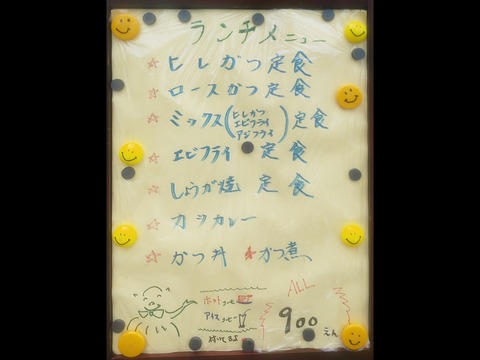 ランチメニュー
☆ヒレかつ定食
☆ロースかつ定食
☆ミックス(ヒレかつ エビフライ アジフライ)定食
☆エビフライ 定食
☆しょうが焼 定食
☆カツカレー
☆かつ丼 ★かつ煮
ホットコーヒー
アイスコーヒー
付いてるよ
ALL
900えん